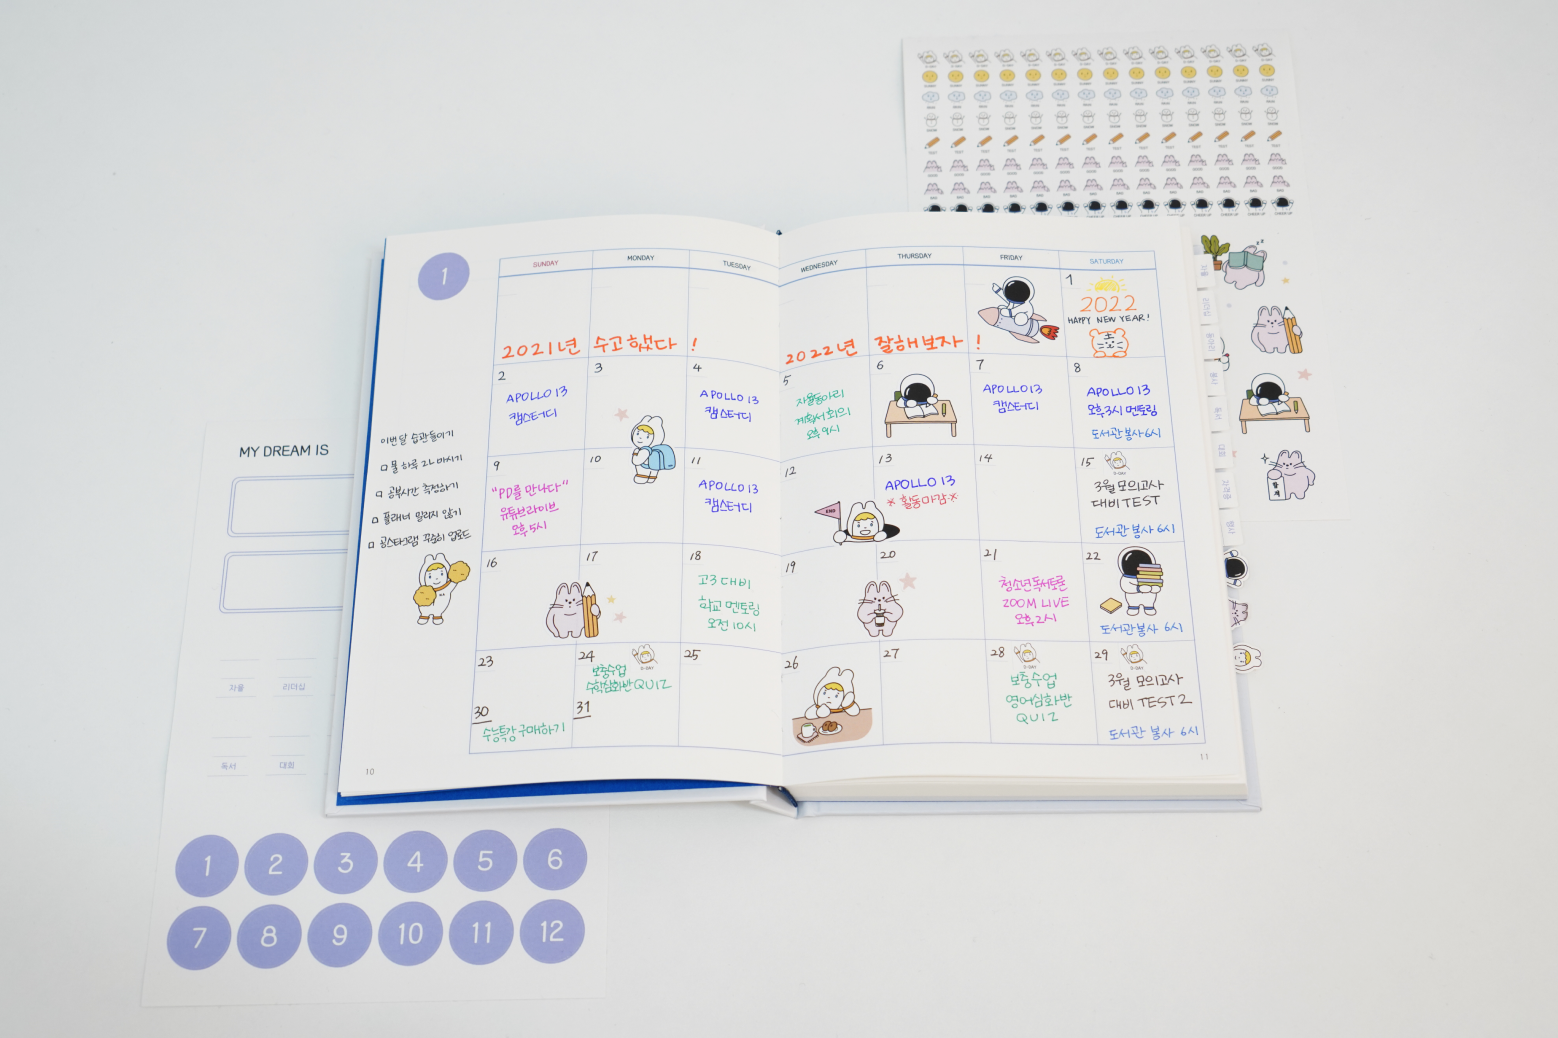 1
SUNDAY MONDAY TUESDAY WEDNESDAY THURSDAY FRIDAY SATURDAY
2021년 수고했다 !
2022년 잘해보자 !
1
2022
HAPPY NEW YEAR!
2
APOLLO 13
캠스터디
3
4
APOLLO 13
캠스터디
5
자율동아리
계획서 회의
오후 9시
6
7
APOLLO 13
캠스터디
8
APOLLO 13
오후3시 멘토링
도서관봉사 6시
9
"PD를 만나다"
유튜브라이브
오후 5시
10
11
APOLLO 13
캠스터디
12
END
13
APOLLO 13
※ 활동마감 ※
14
15
D-DAY
3월 모의고사
대비 TEST
도서관 봉사 6시
16
17
18
고3 대비
학교 멘토링
오전 10시
19
20
21
청소년 독서토론
ZOOM LIVE
오후 2시
22
도서관 봉사 6시
23
30
수능특강 구매하기
24
D-DAY
보충수업
수학심화반 QUIZ
31
25
26
27
28
D-DAY
보충수업
영어심화반
QUIZ
29
D-DAY
3월 모의고사
대비 TEST 2
도서관 봉사 6시
이번달 습관들이기
□ 물 하루 2L 마시기
□ 공부시간 측정하기
□ 플래너 밀리지 않기
□ 공스타그램 꾸준히 업로드
10
11
MY DREAM IS
자율 리더십
독서 대회
1 2 3 4 5 6
7 8 9 10 11 12
자율
리더십
동아리
봉사
독서
대회
자격증
행사